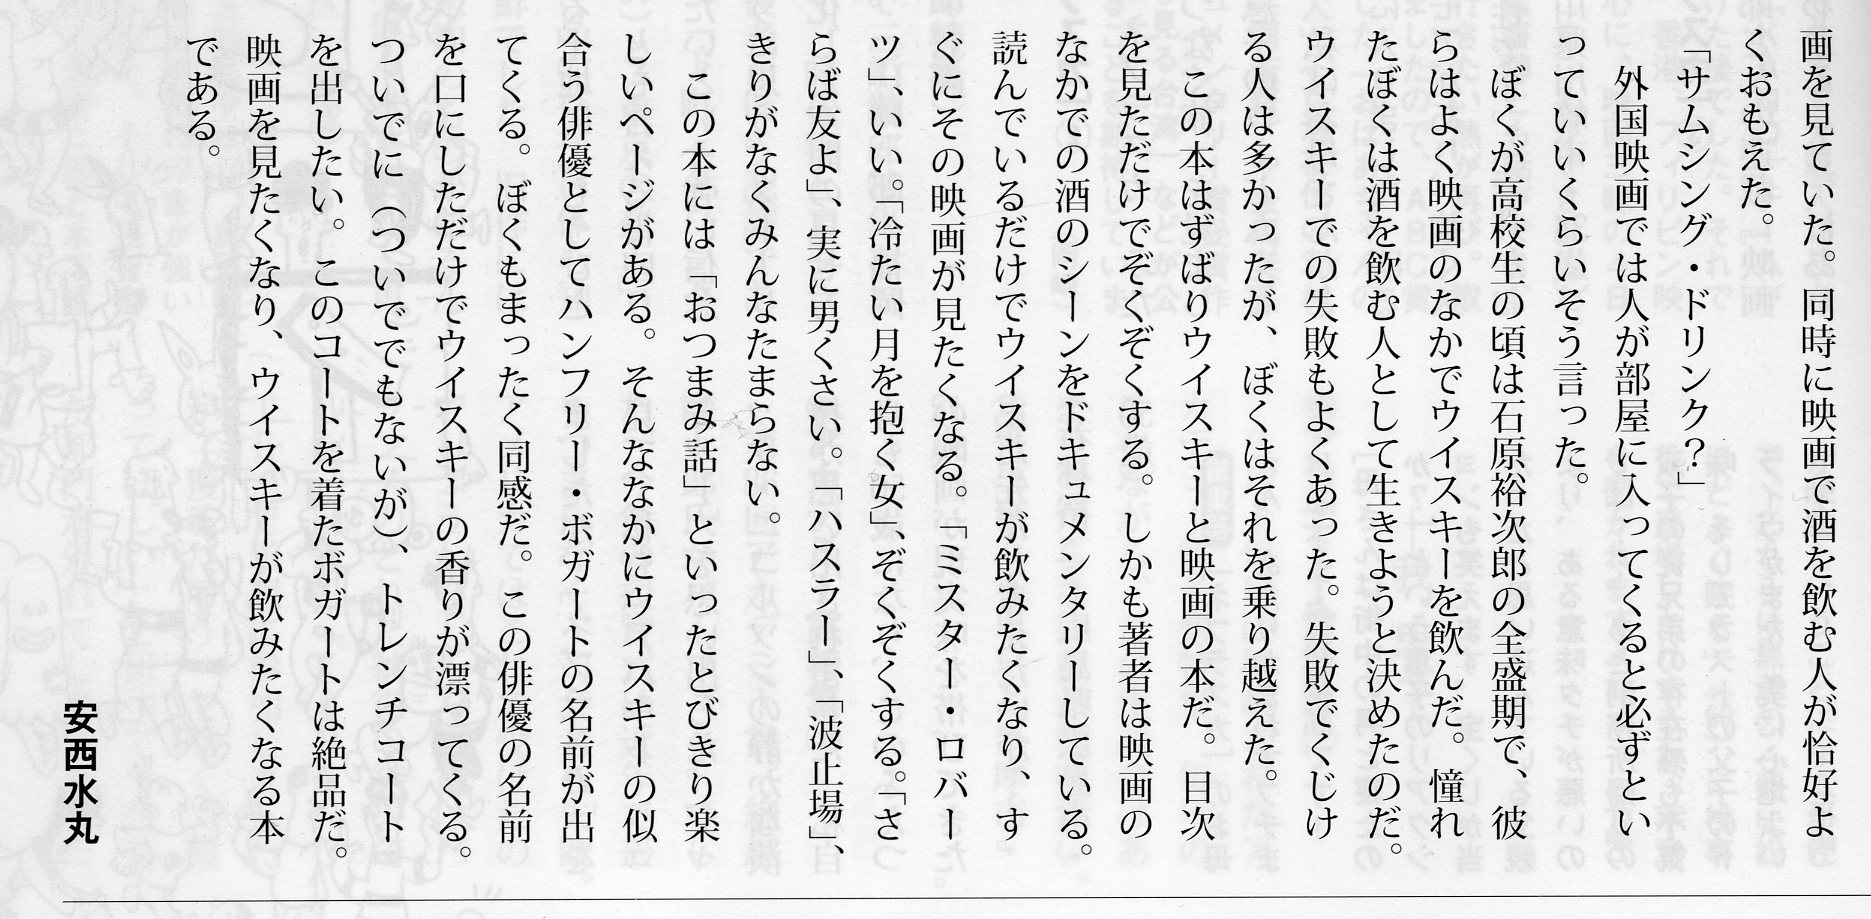 画を見ていた。同時に映画で酒を飲む人が恰好よ
くおもえた。
「サムシング・ドリンク？」
外国映画では人が部屋に入ってくると必ずとい
っていいくらいそう言った。
ぼくが高校生の頃は石原裕次郎の全盛期で、彼
らはよく映画のなかでウイスキーを飲んだ。憧れ
たぼくは酒を飲む人として生きようと決めたのだ。
ウイスキーでの失敗もよくあった。失敗でくじけ
る人は多かったが、ぼくはそれを乗り越えた。
この本はずばりウイスキーと映画の本だ。目次
を見ただけでぞくぞくする。しかも著者は映画の
なかでの酒のシーンをドキュメンタリーしている。
読んでいるだけでウイスキーが飲みたくなり、す
ぐにその映画が見たくなる。「ミスター・ロバー
ツ」、いい。「冷たい月を抱く女」、ぞくぞくする。「さ
らば友よ」、実に男くさい。「ハスラー」、「波止場」、
きりがなくみんなたまらない。
この本には「おつまみ話」といったとびきり楽
しいページがある。そんななかにウイスキーの似
合う俳優としてハンフリー・ボガートの名前が出
てくる。ぼくもまったく同感だ。この俳優の名前
を口にしただけでウイスキーの香りが漂ってくる。
ついでに（ついででもないが）、トレンチコート
を出したい。このコートを着たボガートは絶品だ。
映画を見たくなり、ウイスキーが飲みたくなる本
である。
安西水丸